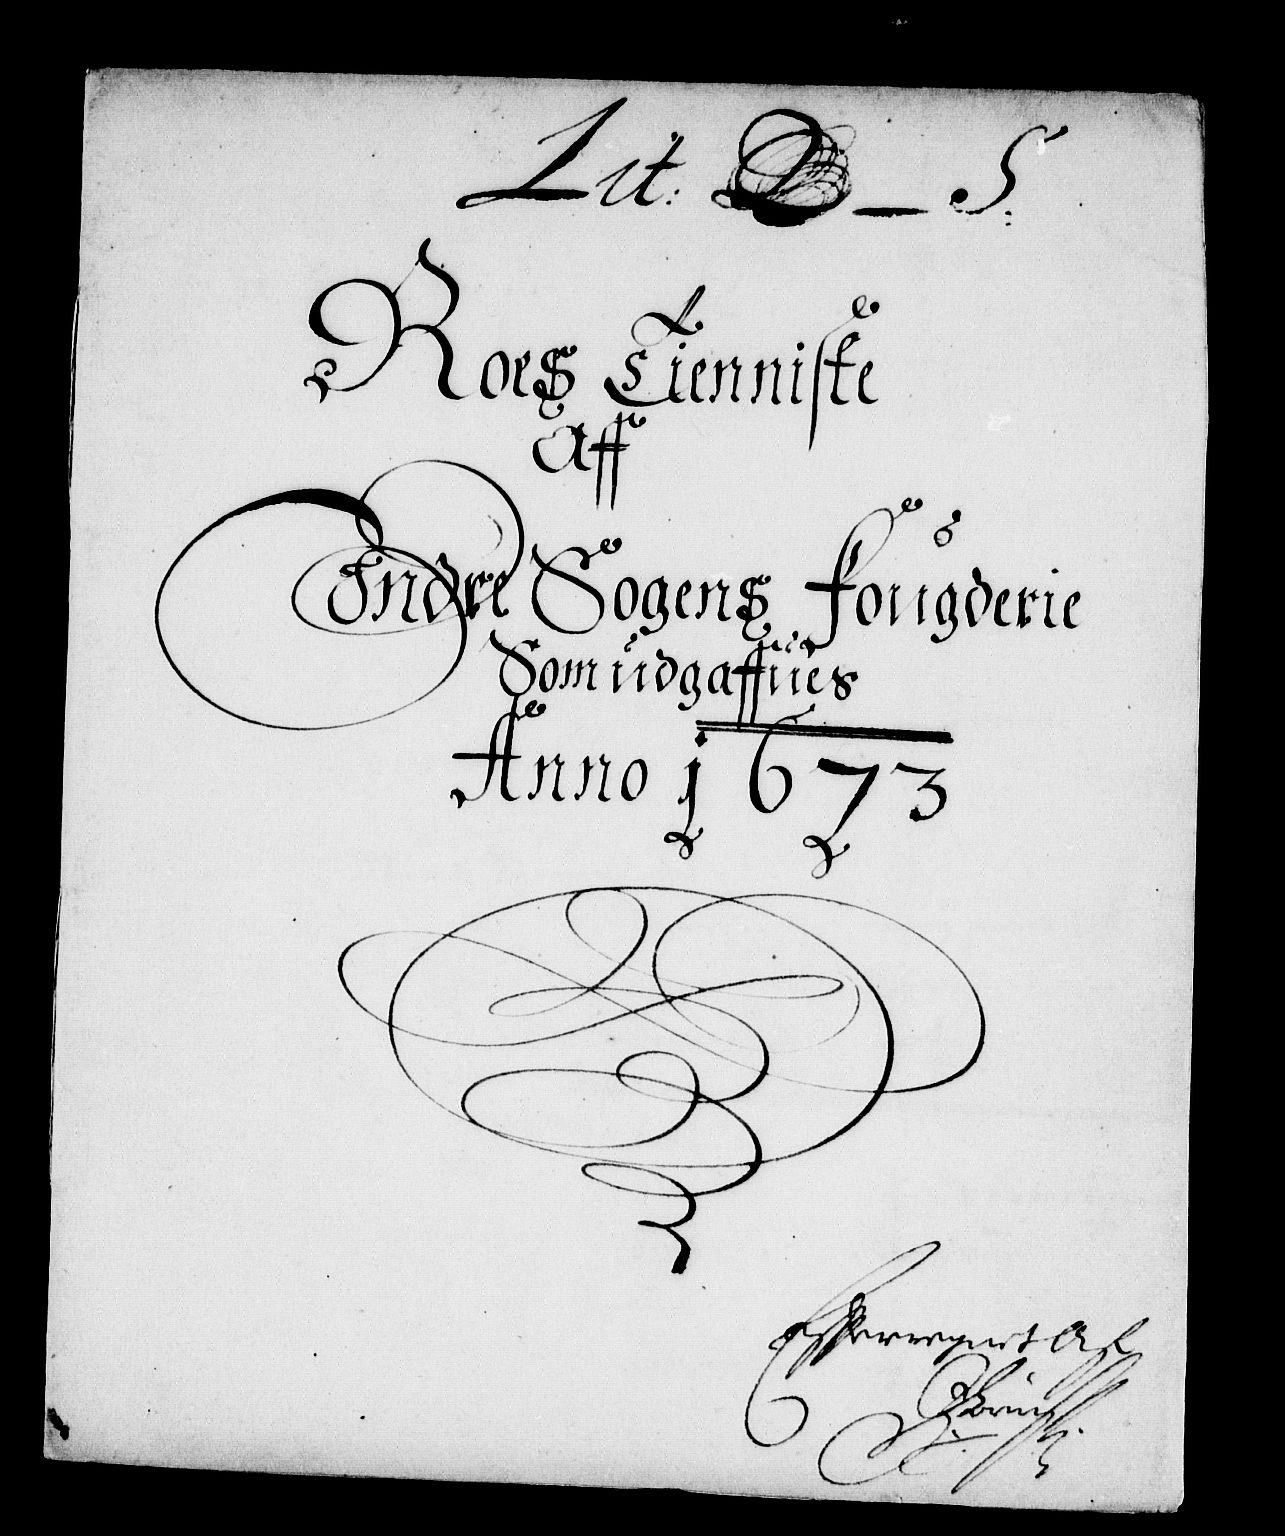 Lit: D_5:
Roes Tienniste
Aff
Indre Sogens fougderie
Som udgaffues
Anno 1673